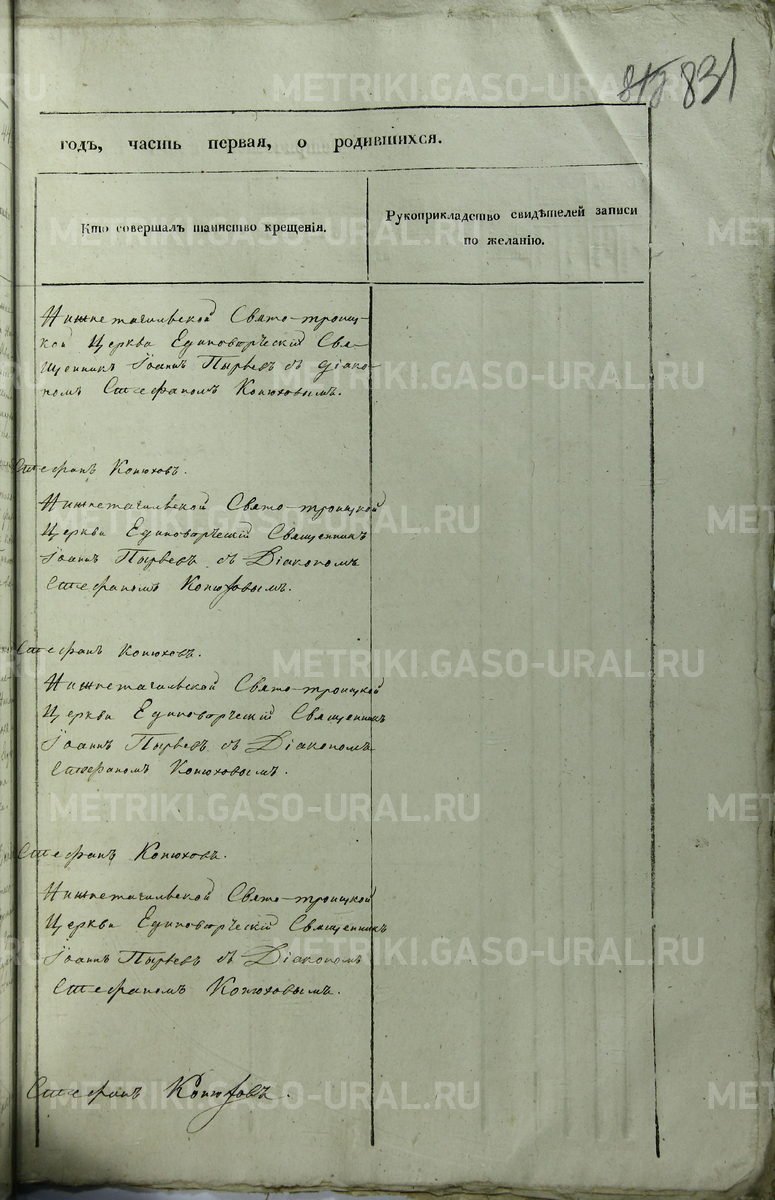 831
годъ, часть первая, о родившихся.
Кто совершалъ таинство крещенія.
Рукоприкладство свидѣтелей записи
по желанію.
Нижнетагильской Свято-троиц-
кой Церкви Единовѣрческій Свя-
щенникъ Іоаннъ Пырьевъ съ діако-
номъ Стефаномъ Конюховымъ.
Стефанъ Конюховъ.
Нижнетагильской Свято-троицкой
Церкви Единовѣрческій Священникъ
Іоаннъ Пырьевъ съ Діакономъ
Стефаномъ Конюховымъ.
Стефанъ Конюховъ.
Нижнетагильской Свято-троицкой
Церкви Единовѣрческій Священникъ
Іоаннъ Пырьевъ съ Діакономъ
Стефаномъ Конюховымъ.
Стефанъ Конюховъ.
Нижнетагильской Свято-троицкой
Церкви Единовѣрческій Священникъ
Іоаннъ Пырьевъ съ Діакономъ
Стефаномъ Конюховымъ.
Стефанъ Конюховъ.
METRIKI.GASO-URAL.RU